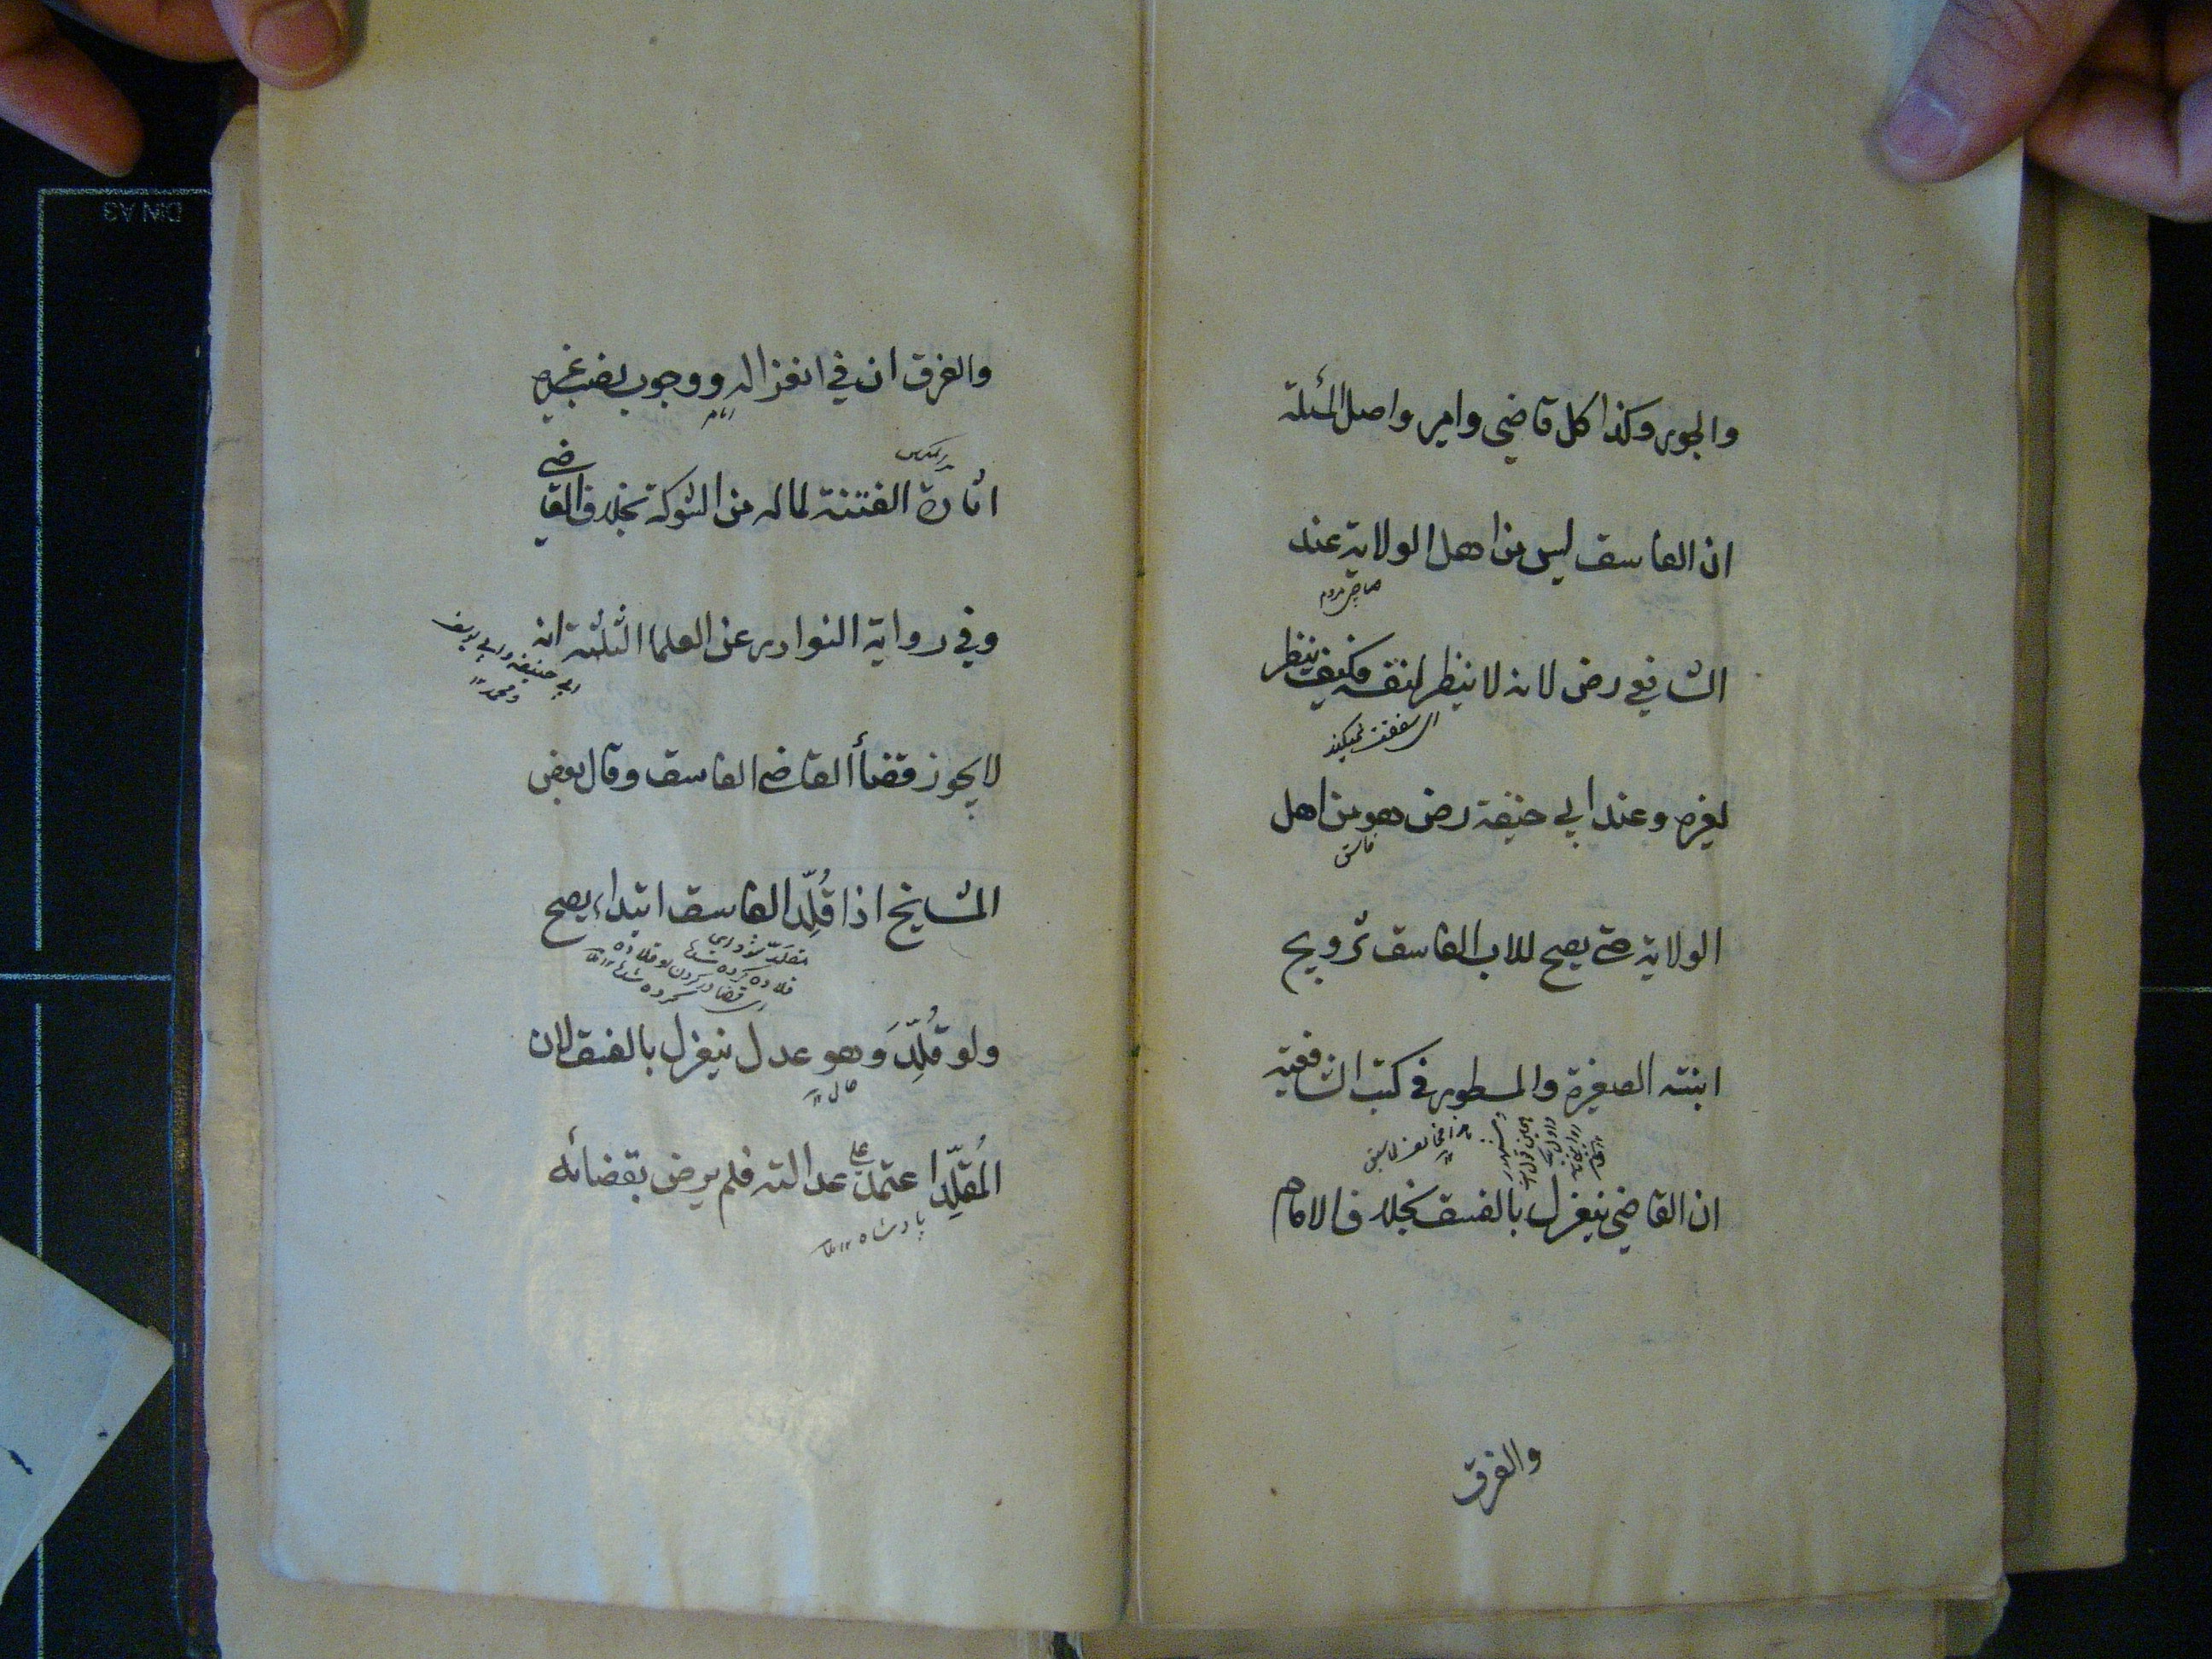 والجور وكذا كل قاضي وامير واصل المسئلة
ان الفاسق ليس من اهل الولاية عند
الشافعي رض لانه لا ينظر لنفسه فكيف ينظر
لغيره وعند ابي حنيفة رض هو من اهل
فاسق
الولاية حتى يصح للاب الفاسق تزويج
ابنته الصغيرة والمسطور في كتب الشافعية
ان القاضي ينعزل بالفسق بخلاف الامام
والفرق
والفرق ان في انعزاله ووجوب نصب غيره
امام
اثارة الفتنة لما له من الشوكة بخلاف القاضي
وفي رواية النوادر عن العلما الثلثة انه
ابي حنيفة وابي يوسف
ومحمد
لا يجوز قضأ القاضي الفاسق وقال بعض
المشايخ اذا قُلِّد الفاسق ابتداء يصح
ولو قُلِّدَ وهو عدل ينعزل بالفسق لان
المُقلِّد اعتمد على عدالته فلم يرض بقضائه
پادشاه